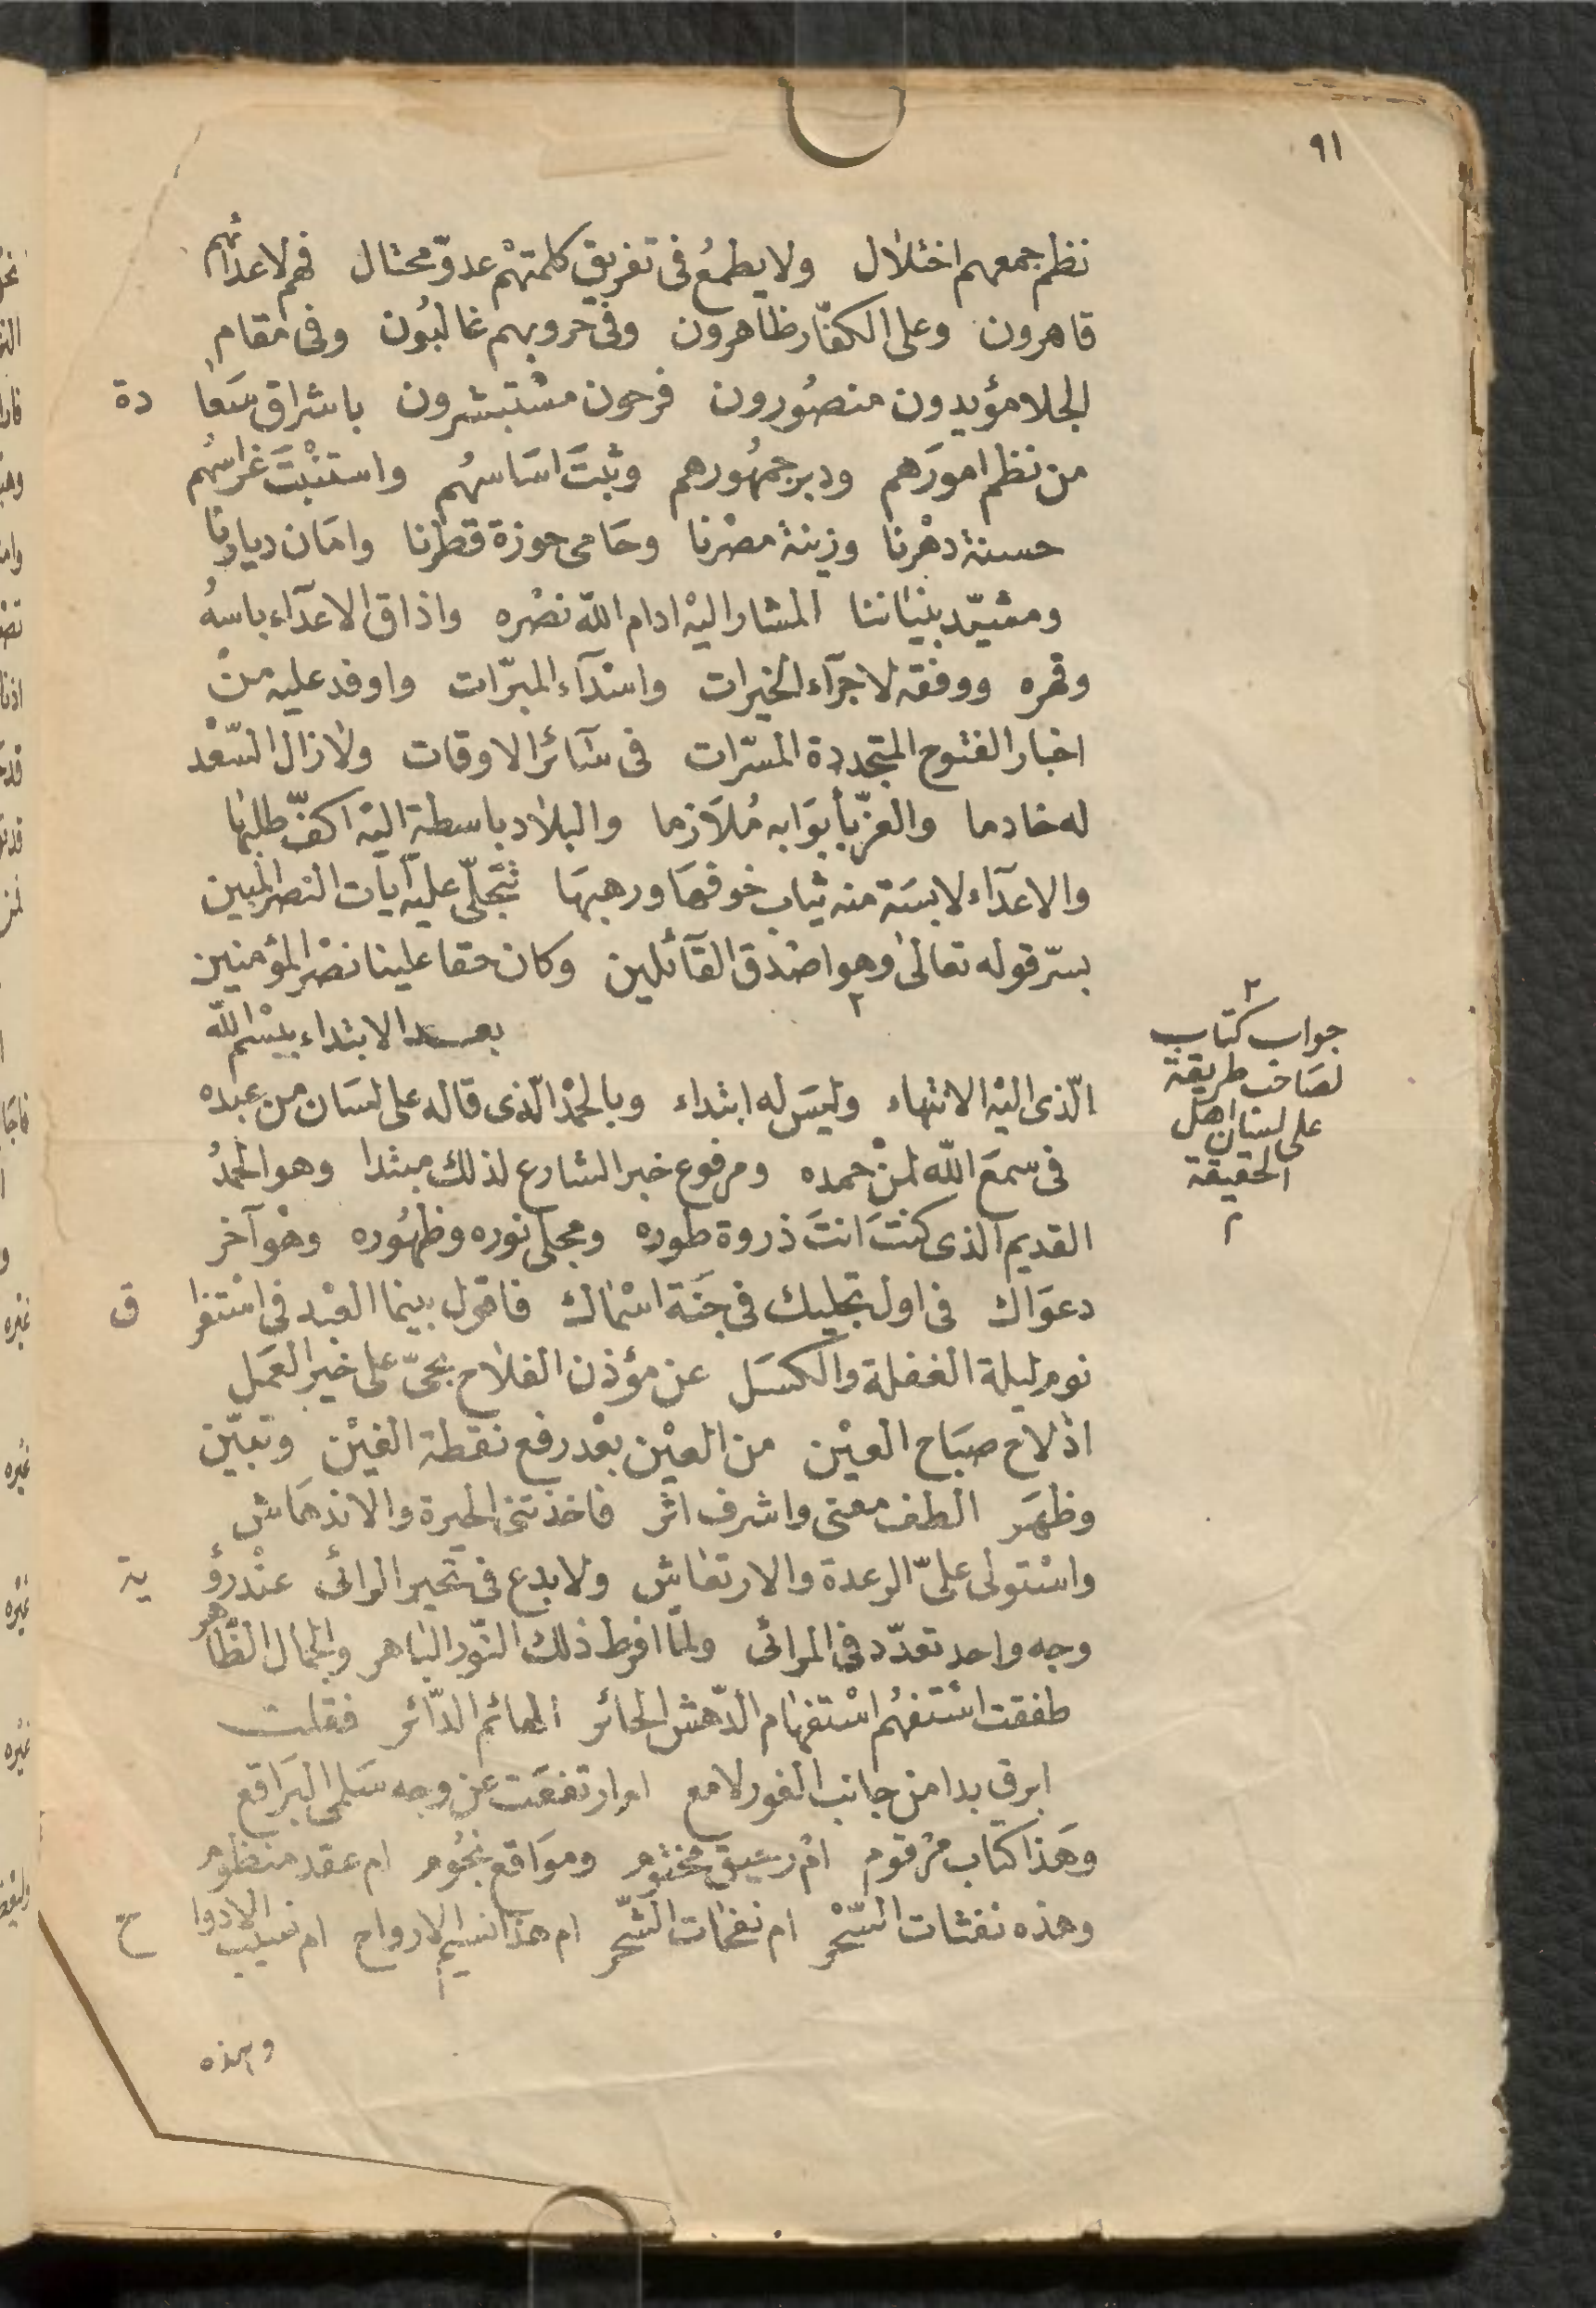 ٩١
نظم جمعهم اختلال ولا يطمعُ فى تفريق كلمتهمْ عدوّ محتال فهم لاعدائهم
قاهرون وعلى الكفّار ظاهرون وفى حروبهم غالبُون وفى مقام
الجلا مؤيدون منصُورون فرحون مسْتبشرون باشراق سَعادة
من نظم امورَهم ودبر جمهُورهم وثبتَ اسَاسهُم واستنْبتَ غراسهُم
حسنة دهْرنا وزينة مصْرنا وحَامى حوزة قطرنا وامَان ديارنا
ومشيّد بنيَاننا المشار اليْه ادام اللّه نصْره واذاق الاعدَآء باسهُ
وقهره ووفقه لاجرآء الخيرات واسْدآء المبرّات واوفد عليه منْ
اخبار الفتوح المتجددة المسّرات فى سَآئر الاوقات ولا زال السّعْد
له خادما والعزّ بأبوَابه مُلَازما والبلاد باسطة اليْه اكفّ طلبهَا
والاعدَآء لابسَة منه ثياب خوفهَا ورهبهَا تتجَلّى عليْه آيات النصر المبين
بسرّ قوله تعَالى وهو اصْدق القآئلين وكان حقا علينا نصْر المؤمنين
بعـــد الابتداء ببسْم اللّه
٢
جواب كتاب
لصَاحب طريقة
على لسان اهل
الحقيقة
٢
الّذى اليْه الانتهاء وليسَ له ابتداء وبالحمْد الّذى قاله على لسَان من عبده
فى سمعَ اللّه لمنْ حمده ومرفوع خبر الشارع لذلك مبتدا وهو الحمدُ
القديم الذى كنتَ انتَ ذروة طوره ومجلى نوره وظهُوره وهْو آخر
دعوَاك فى اول تجليك فى جنَة اسْمَاك فاقول بينما العبْد فى اسْتغراق
نوم ليلة الغفلة والكسَل عن مؤذن الفلاح بحىّ على خير العمَل
اذ لاح صبَاح العيْن من العيْن بعْد رفع نقطة الغيْن وتبيّن
وظهَر الطف معنى واشرف اثر فاخذتنى الحيرة والاندهَاش
واسْتولى علىّ الرعدة والارتعَاش ولا بدع فى تحَير الرائى عنْد رؤية
وجه واحد تعدّد فى المرائى ولمّا افرط ذلك النّور البَاهر والجمَال الظّاهر
طفقت اسْتفهمُ اسْتفهَام الدّهش الحائر الهائم الدّائر فقلت
ابرق بدا من جانب الغور لامع ام ارتفعَت عن وجه سَلمى البَراقع
وهَذا كتَاب مرْقوم امْ رحيق مختوم ومَوَاقع نجُوم ام عقد منظوم
وهذه نفثات السّحْر ام نفحَات السّحر ام هذا نسيم الارواح ام نسيب الادواح
وهذه